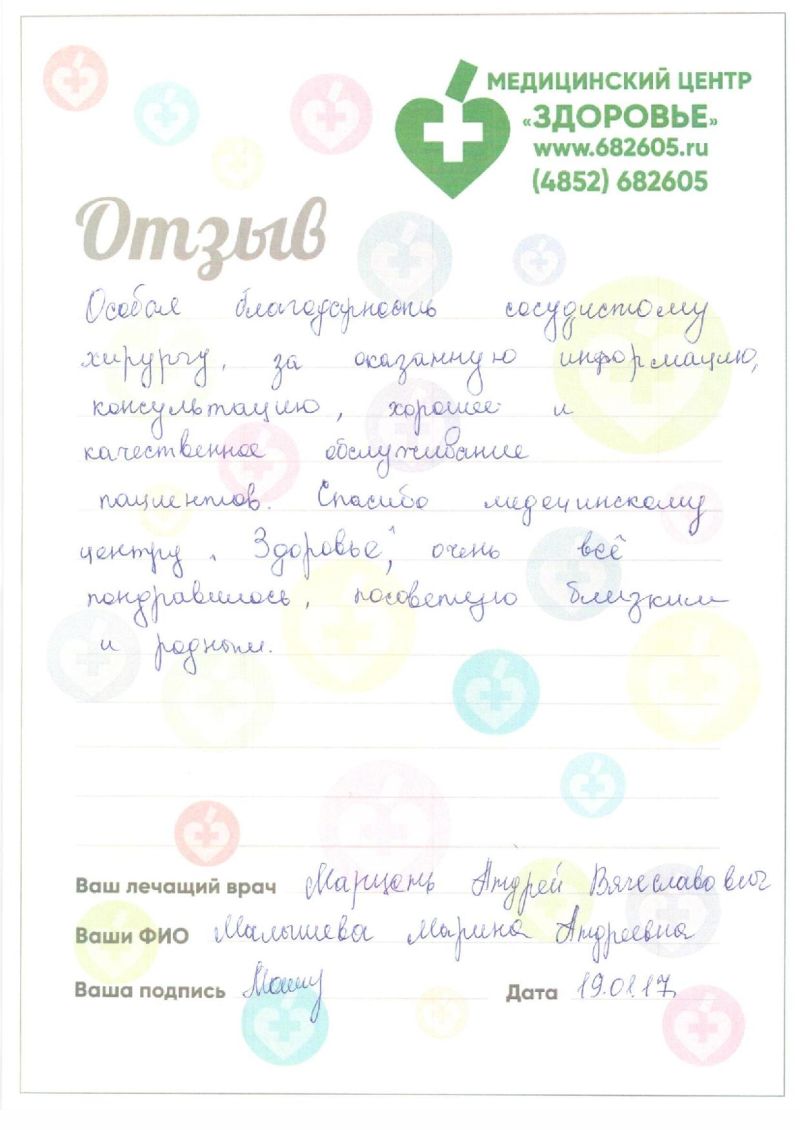 МЕДИЦИНСКИЙ ЦЕНТР
«ЗДОРОВЬЕ»
www.682605.ru
(4852) 682605
Отзыв
Особая благодарность сосудистому
хирургу, за оказанную информацию,
консультацию, хорошее и
качественное обслуживание
пациентов. Спасибо медецинскому
центру "Здоровье", очень всё
пондравилось, посоветую близким
и родным.
Ваш лечащий врач Марцень Андрей Вячеславович
Ваши ФИО Малышева Марина Андреевна
Ваша подпись Дата 19.01.17.